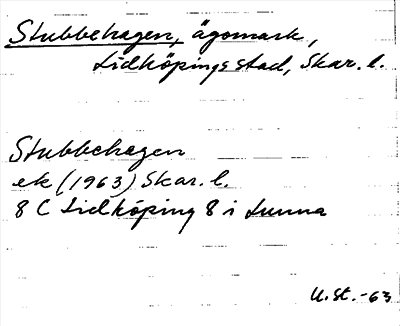 Stubbehagen, ägomark,
Lidköpings stad, Skar. l.
Stubbehagen
ek (1963) Skar. l.
8 C Lidköping 8 i Lunna
U. St. -63